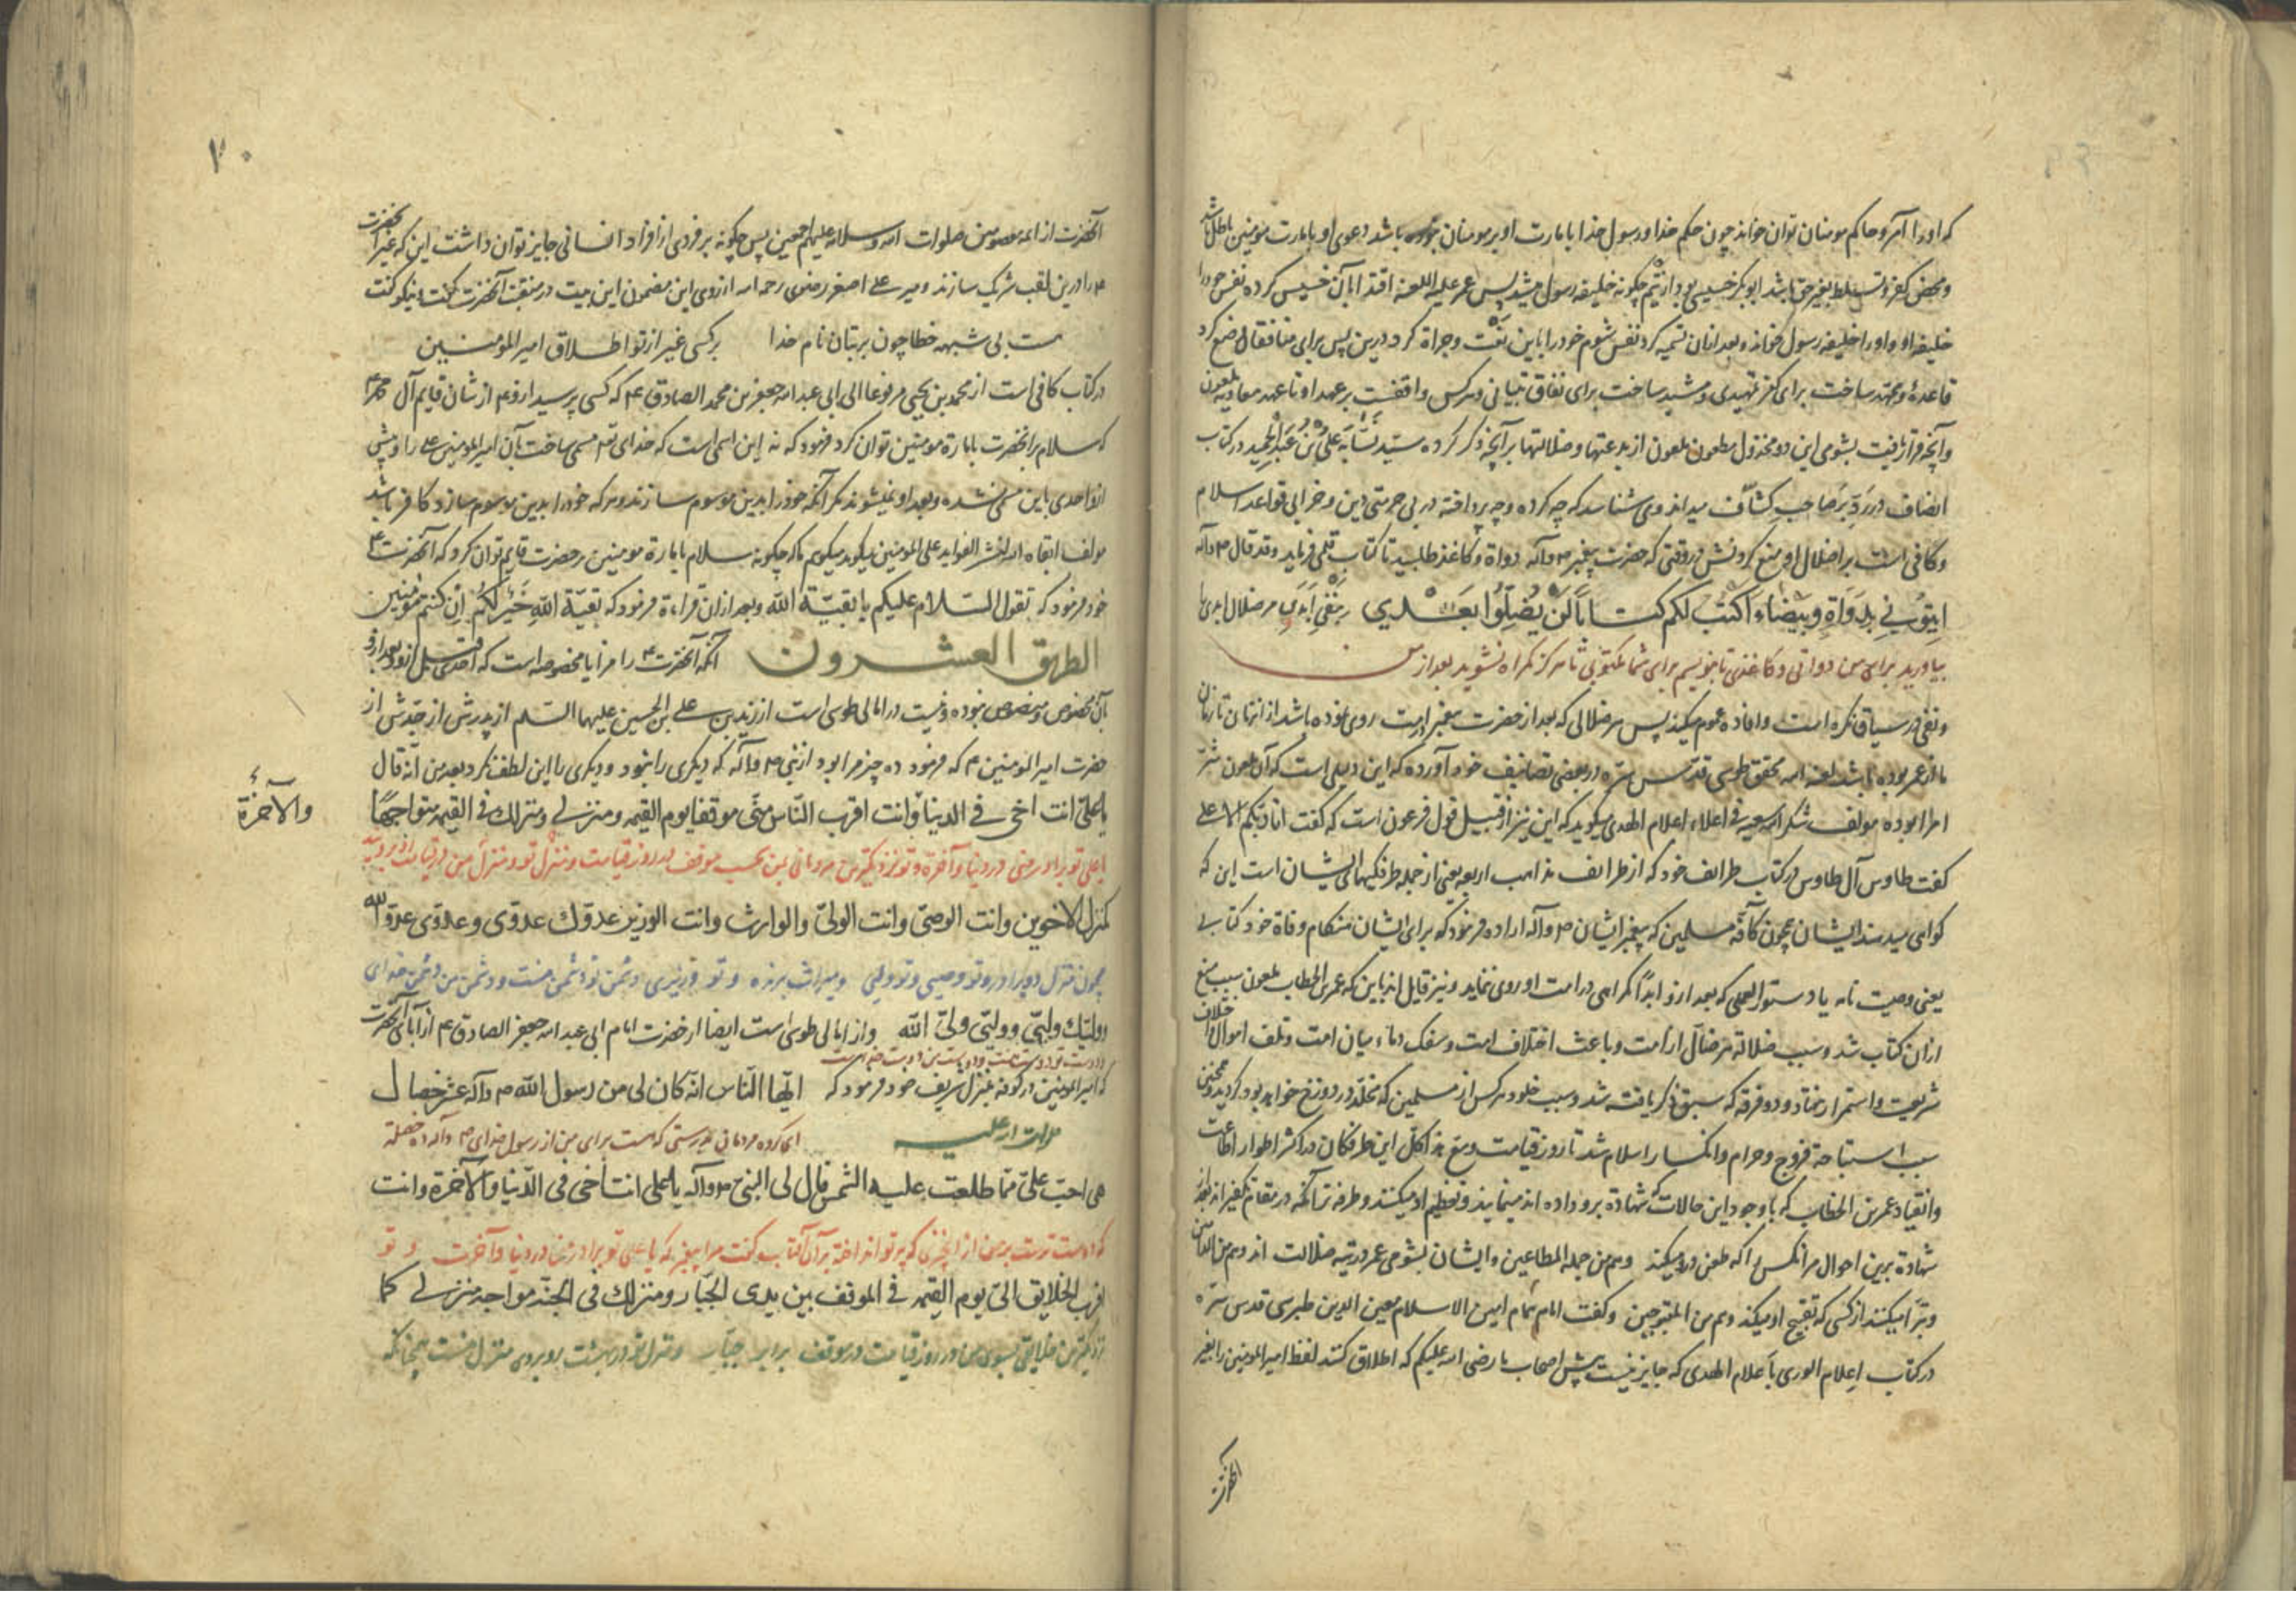 که او را آمر و حاکم مومنان توان خواند چون حکم خدا و رسول خدا بامارت او بر مومنان نبوده باشد دعوی او بامارت مومنین باطل باشد
و محض کفر و تسلط بغیر حق باشد ابوبکر خسیسی بود از تیم چکونه خلیفه رسول میشد پس عمر علیه اللعنه اقتدا بآن خسیس کرده نفس خود را
خلیفه او و او را خلیفه رسول خواند و بعد ازان تسمیه کرد نفس شوم خود را باین نعت و جراة کرد درین پس برای منافقان وضع کرد
قاعدۀ و مهد ساخت برای کفر تمهیدی و مشید ساخت برای نفاق بنیانی و هرکس واقفست بر عهد او تا عهد معاویه ملعون
و آنچه قرار یافت بشومی این دو مخذول مطعون ملعون از بدعتها و ضلالتها بر آنچه ذکر کرده سید نسابه علی بن عبد الحمید در کتاب
انصاف در رد بر صاحب کشاف میداند و می شناسد که چه کرده و چه پرداخته در بی حرمتی دین و خرابی قواعد اسلام
و کافی است بر اضلال او منع کردنش در وقتی که حضرت پیغمبر ص وآله دواة و کاغذ طلبید تا کتاب قلمی فرماید و قد قال ص وآله
ایتونی بدواة و بیضاء اکتب لکم کتابا لن یضلوا بعدی بنفی ابدی مر ضلال ابدی را
بیاورید برای من دواتی و کاغذی تا بنویسم برای شما مکتوبی تا هرکز کمراه نشوید بعد از من
و نفی در سیاق نکره است و افاده عموم میکند پس هر ضلالی که بعد از حضرت پیغمبر در امت روی نموده باشد از انزمان تا زمان
ما از عمر بوده باشد لعنه الله محقق طوسی قدس سره در بعضی تصانیف خود آورده که این دلیلی است که آن ملعون شر
امرا بوده مولف شکر الله سعیه فی اعلاء اعلام الهدی میکوید که این نیز از قبیل قول فرعون است که کفت انا ربکم الاعلی
کفت طاوس آل طاوس در کتاب طرائف خود که از طرایف مذاهب اربعه یعنی از جمله طرفکیهای ایشان است این که
کواهی میدهند ایشان همچون کافه مسلمین که پیغمبر ایشان ص وآله اراده فرمود که برای ایشان هنکام وفاة خود کتابی
یعنی وصیت نامه یا دستور العملی که بعد ازو ابدا کمراهی در امت او روی ننماید و نیز قایل اند باین که عمر بن الخطاب ملعون سبب منع
ازان کتاب شد و سبب ضلالة هر ضال از امت و باعث اختلاف امت و سفک دماء میان امت و تلف اموال و اختلال
شریعت و استمرار هفتاد و دو فرقه که سبق ذکر یافته شد و سبب خلود هرکس از مسلمین که مخلد در دوزخ خواهد بود کردید و همچنین
سبب استباحة فروج و حرام و انکسار اسلام شد تا روز قیامت و مع هذا کله این طرفکان در اکثر اطوار اطاعت
و انقیاد عمر بن الخطاب که با وجود این حالات که شهادة برو داده اند مینمایند و تعظیم او میکنند و طرفه تر آنکه در مقام تکفیر اند بلفظ
شهادة برین احوال مر آنکس را که طعن درو میکند و هم من جمله المطاعین و ایشان بشومی عمر در تیه ضلالت اند و هم من الضالین
و تبرا میکنند از کسی که تقبیح او میکند و هم من المقبوحین و کفت امام همام امین الاسلام معین الدین طبرسی قدس سره
در کتاب اعلام الوری باعلام الهدی که جایز نیست پیش اصحاب ما رضی الله علیکم که اطلاق کنند لفظ امیر المومنین را بغیر
آنحضرت
۷۰
آنحضرت از ائمه معصومین صلوات الله وسلامه علیهم اجمعین پس چکونه بر فردی از افراد انسانی جایز توان داشت این که غیر آنحضرت
ع را درین لقب شریک سازند و میر علی اصغر رضوی رحمه الله از روی این مضمون این بیت در منقبت آنحضرت کفت و نیکو کفت
هست بی شبهه خطا چون بر بتان نام خدا بر کسی غیر از تو اطلاق امیر المؤمنین
در کتاب کافی است از محمد بن یحیی مرفوعا الی ابی عبد الله جعفر بن محمد الصادق ع که کسی پرسید ازو ع از شان قایم آل محمد ع
که سلام بر آنحضرت بامارة مومنین توان کرد فرمود که نه این اسمی است که خدای تع مسمی ساخت بآن امیر المومنین علی را و پیش
ازو احدی باین مسمی نشده و بعد او نمیشوند مکر آنکه خود را بدین موسوم سازند و هرکه خود را بدین موسوم سازد کافر باشد
مولف ابقاه الله لنشر الفواید علی المومنین میکوید میکویم که چکونه سلام بامارة مومنین بر حضرت قایم توان کرد که آنحضرت ع
خود فرمود که تقول السلام علیکم یا بقیة الله و بعد ازان قراءة فرمود که بقیة الله خیر لکم ان کنتم مؤمنین
الطریق العشرون آنکه آنحضرت ع را مزایا مخصوصه است که احدی قبل ازو و بعد ازو
بآن مخصوص و منصوص نبوده و نیست در امالی طوسی است از زید بن علی بن الحسین علیهما السلم از پدرش از جدش از
حضرت امیر المومنین ع که فرمود ده چیز مرا بود از نبی ص وآله که دیکری را نبود و دیکری را این لطف نکرد بعد من انه قال
یا علی انت اخی فی الدنیا وانت اقرب الناس منی موقفا یوم القیمه ومنزلی ومنزلك فی القیمه متواجها
والآخرة
یا علی تو برادر منی در دنیا و آخرة و تو نزدیکترین مردمانی بمن بحسب موقف در روز قیامت و منزل تو و منزل من در قیامت
کمنزل الاخوین وانت الوصی وانت الولی والوارث وانت الوزیر عدوك عدوی وعدوی عدو الله
همچون منزل دو برادر و تو وصیی و تو ولیی و میراث برنده و تو وزیری دشمن تو دشمن منست و دشمن من دشمن خدای
وولیك ولیی وولیی ولی الله و از امالی طوسی است ایضا از حضرت امام ابی عبد الله جعفر الصادق ع از آبای آنحضرت
و دوست تو دوست منست و دوست من دوست خداست
که امیر المومنین در کوفه بمنزل شریف خود فرمود که ایها الناس انه کان لی من رسول الله ص وآله عشر خصال
صلوات الله علیه ای کروه مردمان بدرستی که هست برای من از رسول خدای ص وآله ده خصلة
هی احب علی مما طلعت علیه الشمس قال لی النبی ص وآله یا علی انت اخی فی الدنیا والآخرة وانت
که دوست ترست بر من از آنچیزی که پرتو انداخته بر آن آفتاب کفت مرا پیغمبر که یا علی تو برادر منی در دنیا و آخرت و تو
اقرب الخلایق الی یوم القیمه فی الموقف بین یدی الجبار ومنزلك فی الجنة مواجه منزلی کما
نزدیکترین خلایقی بسوی من در روز قیامت در موقف برابر جبار و منزل تو در بهشت روبروی منزل منست همچنانکه